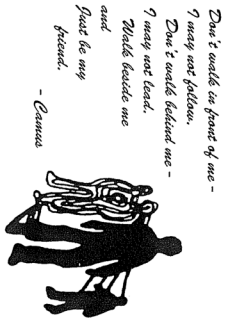 Don't walk in front of me -
I may not follow.
Don't walk behind me -
I may not lead.
Walk beside me
and
Just be my
friend.
- Camus